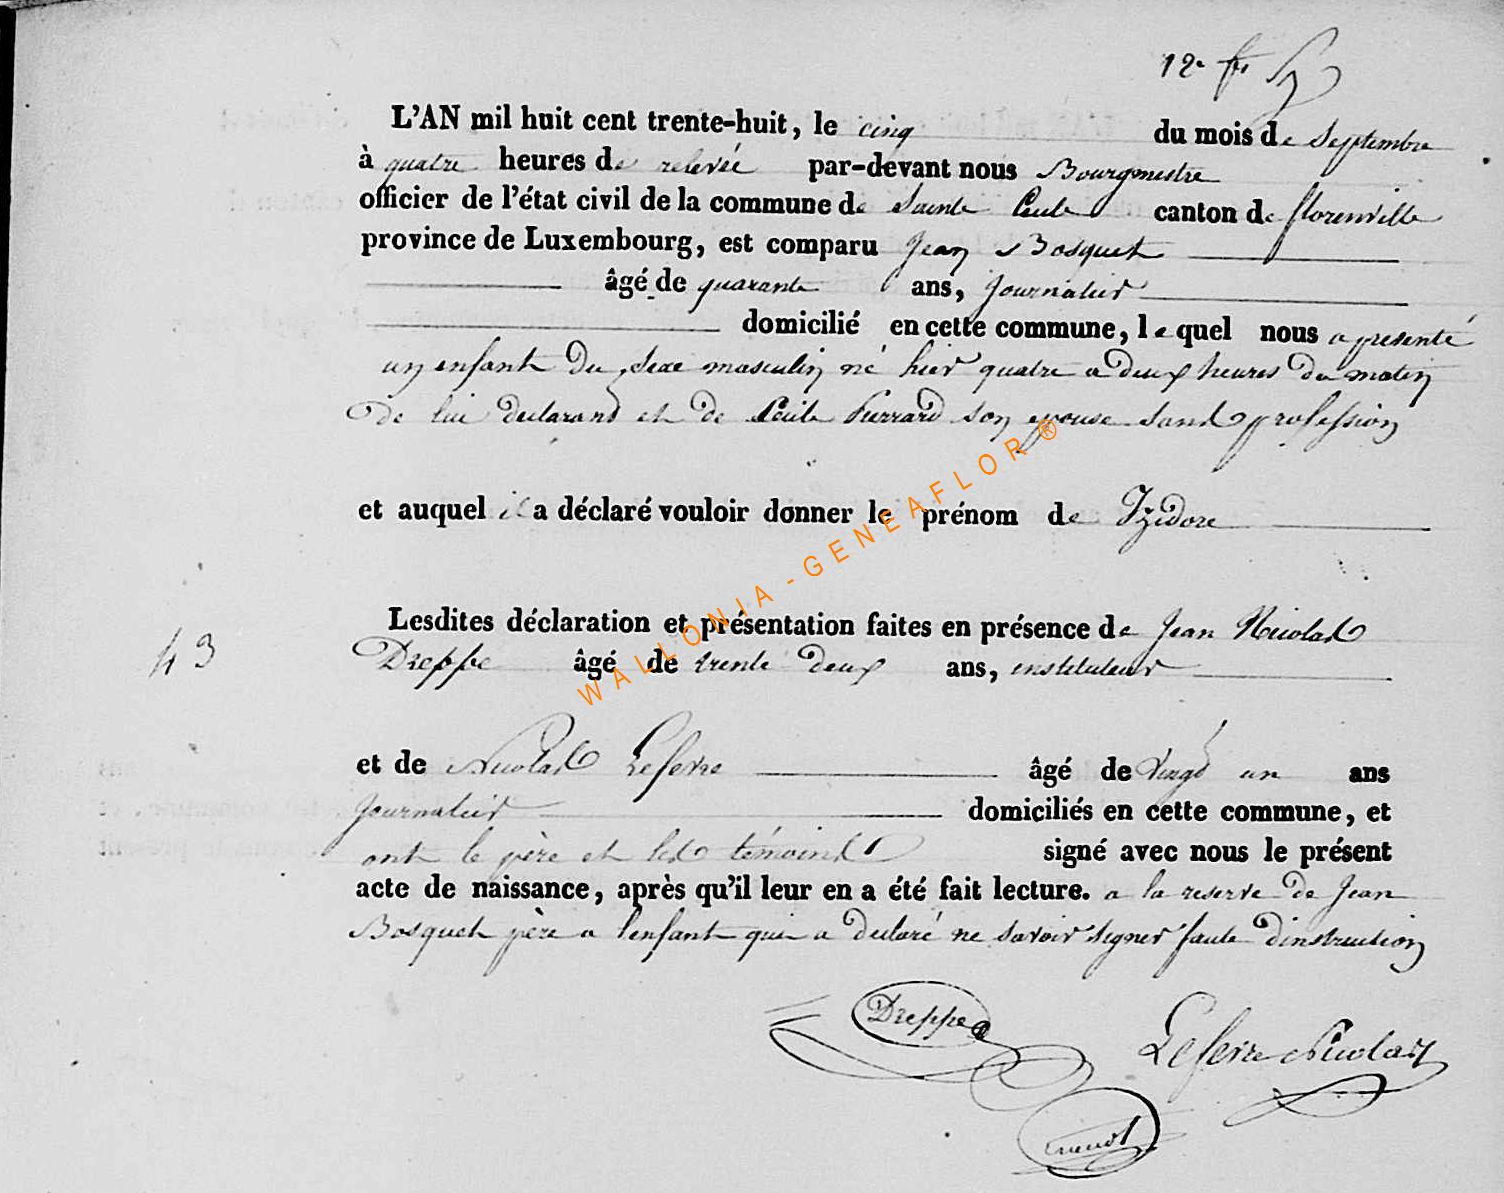 12e
L'AN mil huit cent trente-huit, le cinq du mois de Septembre
à quatre heures de relevée par-devant nous Bourgmestre
officier de l'état civil de la commune de Sainte Cecile canton de florenville
province de Luxembourg, est comparu Jean Bosquet
âgé de quarante ans, Journalier
domicilié en cette commune, lequel nous a presenté
un enfant du sexe masculin né hier quatre a deux heures du matin
de lui declarand et de Cecile Pierrard son epouse sans profession
et auquel il a déclaré vouloir donner le prénom de Izidore
Lesdites déclaration et présentation faites en présence de Jean Nicolas
43
Dreppe âgé de trente deux ans, instituteur
et de Nicolas Lefevre âgé de vingt un ans
Journalier domiciliés en cette commune, et
ont le père et les témoins signé avec nous le présent
acte de naissance, après qu'il leur en a été fait lecture. a la reserve de Jean
Bosquet père a l'enfant qui a declaré ne savoir signer faute d'instruction
Dreppe
Lefevre Nicolas
WALLONIA-GENEAFLOR®